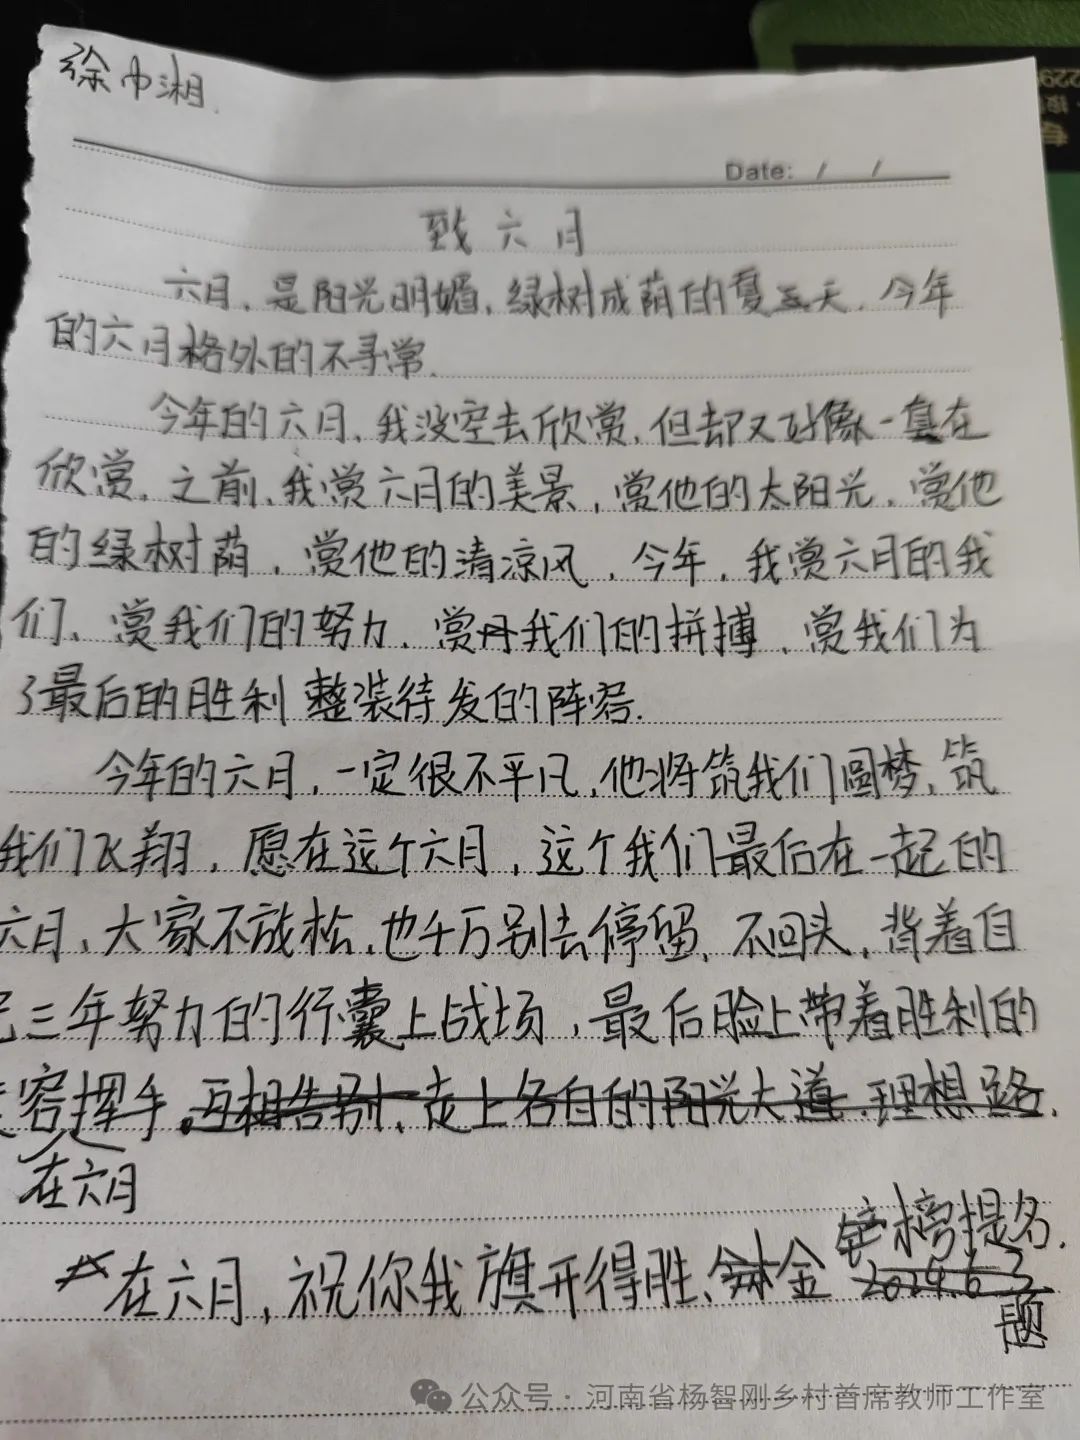 徐巾湘
Date: / /
致六月
六月,是阳光明媚,绿树成荫的夏天,今年
的六月格外的不寻常.
今年的六月,我没空去欣赏,但却又好像一直在
欣赏,之前,我赏六月的美景,赏他的太阳光,赏他
的绿树荫,赏他的清凉风,今年,我赏六月的我
们,赏我们的努力,赏我们的拼搏,赏我们为
了最后的胜利整装待发的阵容.
今年的六月,一定很不平凡,他将筑我们圆梦,筑
我们飞翔,愿在这个六月,这个我们最后在一起的
六月,大家不放松,也千万别去停留,不回头,背着自
己三年努力的行囊上战场,最后脸上带着胜利的
容挥手,再相告别,走上各自的阳光大道,理想路.
在六月
在六月,祝你我旗开得胜,金榜提名.
2024.6.3
题
公众号·河南省杨智刚乡村首席教师工作室
229